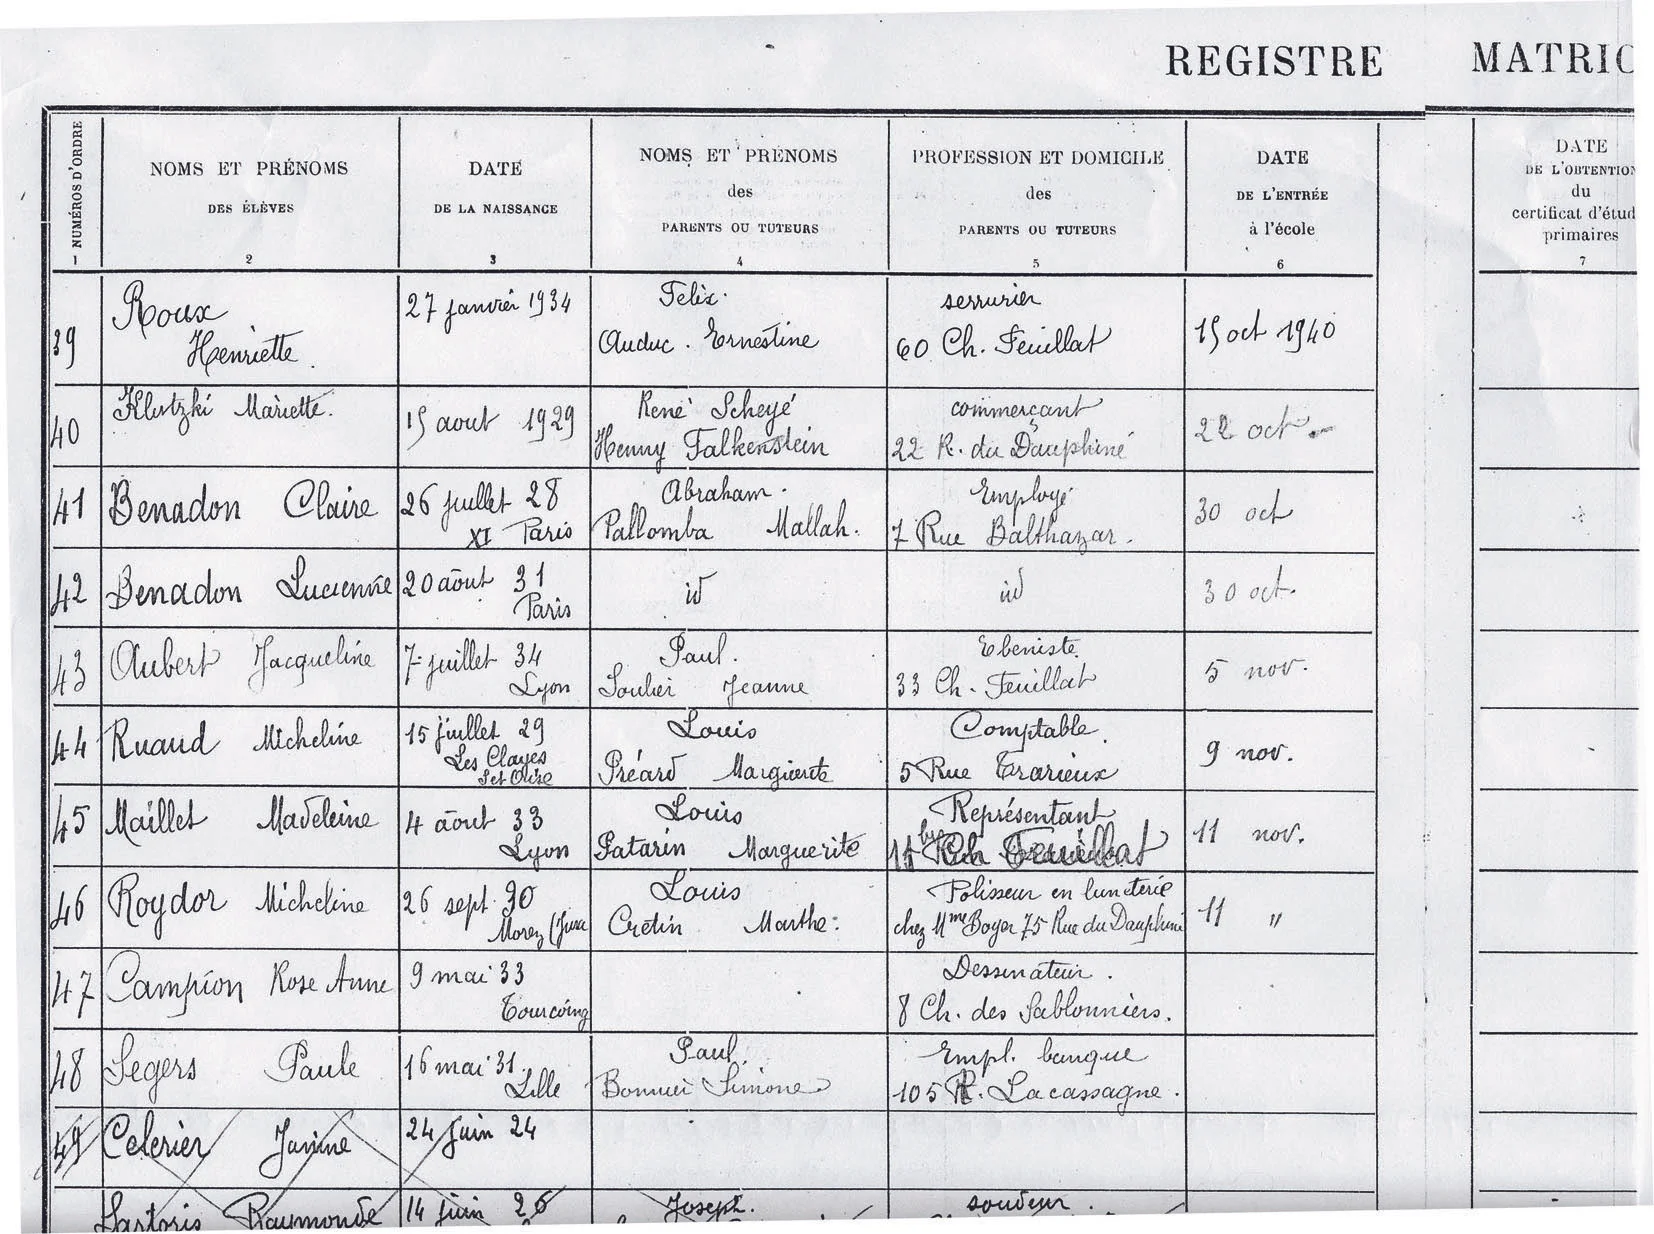 REGISTRE MATRIC
NUMÉROS D'ORDRE
1
NOMS ET PRÉNOMS
DES ÉLÈVES
2
DATE
DE LA NAISSANCE
3
NOMS ET PRÉNOMS
des
PARENTS OU TUTEURS
4
PROFESSION ET DOMICILE
des
PARENTS OU TUTEURS
5
DATE
DE L'ENTRÉE
à l'école
6
DATE
DE L'OBTENTION
du
certificat d'étud
primaires
7
39
Roux
Henriette.
27 janvier 1934
Felix.
Auduc. Ernestine
serrurier
60 Ch. Feuillat
15 oct 1940
40
Klutzki Mariette.
15 aout 1929
René Scheyé
Henny Falkenstein
commerçant
22 R. du Dauphiné
22 oct
41
Benadon Claire
26 juillet 28
XI Paris
Abraham.
Pallomba Mallah.
Employé
7 Rue Balthazar.
30 oct
42
Benadon Lucienne
20 août 31
Paris
id
id
30 oct.
43
Aubert Jacqueline
7 juillet 34
Lyon
Paul.
Soulier Jeanne
Ebeniste
33 Ch. Feuillat
5 nov.
44
Ruaud Micheline
15 juillet 29
Les Clayes
S et Oise
Louis
Préard Marguerite
Comptable
5 Rue Trarieux
9 nov.
45
Maillet Madeleine
4 août 33
Lyon
Louis
Patarin Marguerite
Représentant
Ch Feuillat
11 nov.
46
Roydor Micheline
26 sept 30
Morez (Jura
Louis
Cretin Marthe.
Polisseur en lunéterie
chez Mme Boyer 75 Rue du Dauphiné
11 "
47
Campion Rose Anne
9 mai 33
Tourcoing
Dessinateur.
8 Ch. des Sablonniers.
48
Segers Paule
16 mai 31
Lille
Paul.
Bonnier Simone
Empl. banque
105 R. Lacassagne.
49
Celerier Janine
24 juin 24
Sartoris Raymonde
14 juin 26
Joseph.
soudeur.